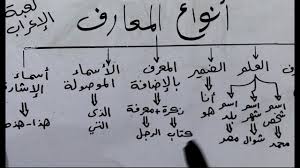 أنواع المعارف
لعبة
الإعراب
العلم
اسم شخص
محمد
اسم شهر
شوال
اسم بلد
مصر
الضمير
أنا
هو
المعرف
بالإضافة
نكرة+معرفة
كتاب الرجل
الأسماء
الموصولة
الذى
التي
أسماء
الإشارة
هذا-هذه